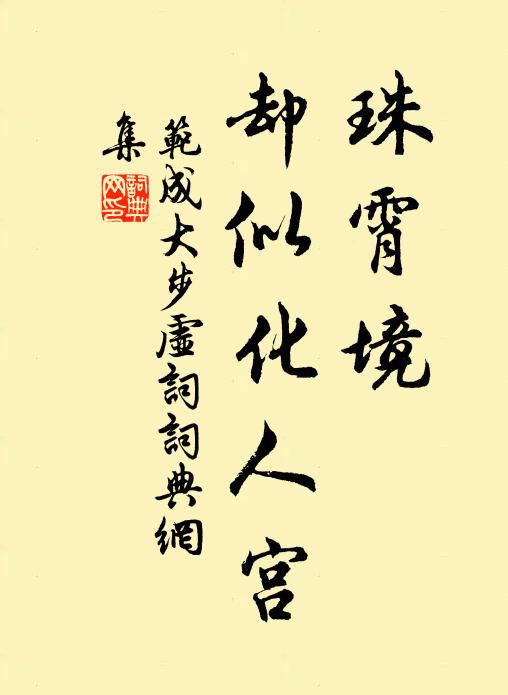 珠霄境
却似化人宫
範成大步虛詞詞典網
集
詞典網印